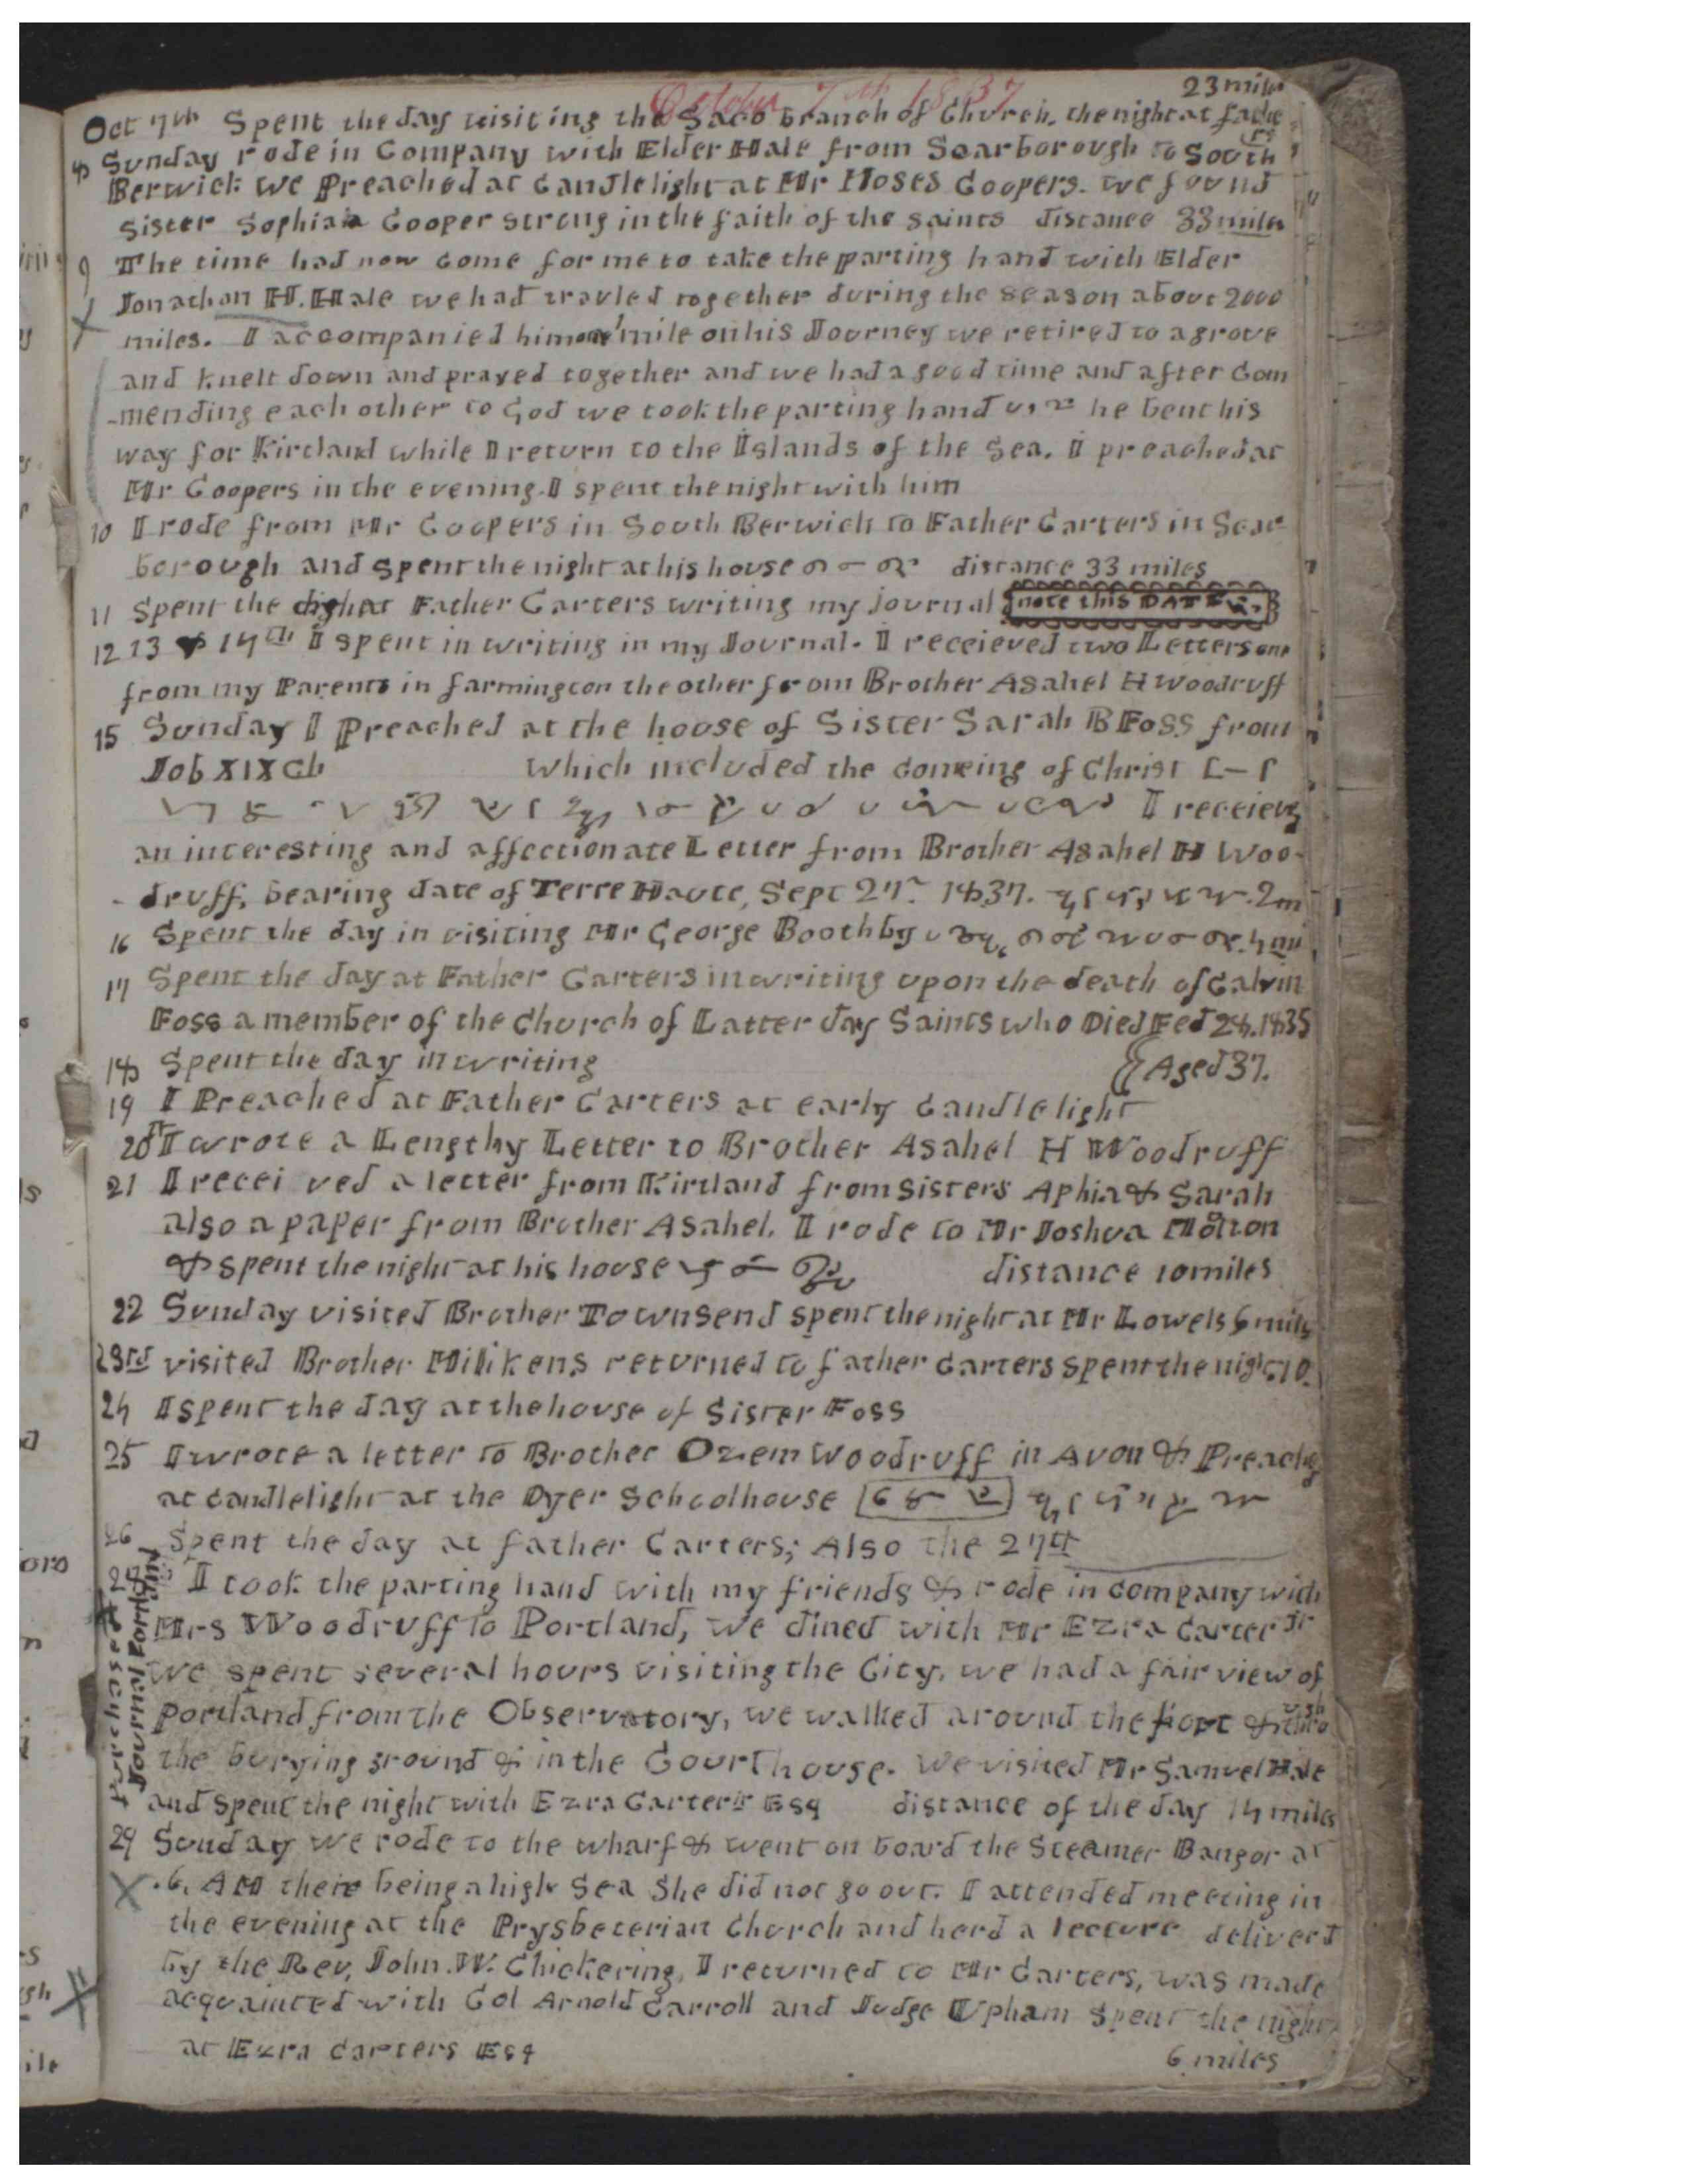 October 7th 1837
23 mile
Oct 7th Spent the day visiting the Saco branch of Church. the night at
8 Sunday rode in Company with Elder Hale from Scarborough to South
Berwick we Preached at Candlelight at Mr Moses Coopers. we found
Sister Sophia Cooper strong in the faith of the saints distance 33 miles
9 The time had now come for me to take the parting hand with Elder
Jonathan H. Hale we had travled together during the season about 2000
miles. I accompanied him one mile on his Journey we retired to a grove
and knelt down and prayed together and we had a good time and after Com
-mending each other to God we took the parting hand he bent his
way for Kirtland while I return to the Islands of the Sea. I preached at
Mr Coopers in the evening. I spent the night with him
10 I rode from Mr Coopers in South Berwick to Father Carters in Scar
borough and spent the night at his house distance 33 miles
11 Spent the at Father Carters writing my journal note this DATE
12 13 & 14th I spent in writing in my Journal. I receieved two Letters one
from my Parents in farmington the other from Brother Asahel H Woodruff
15 Sunday I Preached at the house of Sister Sarah B Foss from
Job XIX Ch Which included the comeing of Christ
I receievd
an interesting and affectionate Letter from Brother Asahel H Woo-
-druff, bearing date of Terre Haute, Sept 27th 1837. 2m
16 Spent the day in visiting Mr George Boothby 4 mi
17 Spent the day at Father Carters in writing upon the death of Calvin
Foss a member of the Church of Latter day Saints who Died Fed 28. 1835
18 Spent the day in writing Aged 37.
19 I Preached at Father Carters at early Candlelight
20th I wrote a Lengthy Letter to Brother Asahel H Woodruff
21 I recei ved a letter from Kirtland from Sisters Aphia & Sarah
also a paper from Brother Asahel. I rode to Mr Joshua Molton
& spent the night at his house distance 10 miles
22 Sunday visited Brother Townsend spent the night at Mr Lowels 6 mils
23rd visited Brother Milikens returned to father Carters spent the night 10.
24 I spent the day at the house of Sister Foss
25 I wrote a letter to Brother Ozem Woodruff in Avon & Preachd
at candlelight at the Dyer Schoolhouse
26 Spent the day at father Carters; Also the 27th
28 I took the parting hand with my friends & rode in company with
Mrs Woodruff to Portland, we dined with Mr Ezra Carter Jr
we spent several hours visiting the City, we had a fair view of
Portland from the Observatory, we walked around the fort & through
the burying ground & in the Court house. We visited Mr Samuel Hale
and spent the night with Ezra Carter Jr Esq distance of the day 14 miles
purchased
Journal
29 Sunday we rode to the wharf & went on board the Steamer Bangor at
.6. AM there being a high Sea She did not go out. I attended meeting in
the evening at the Prysbeterian Church and herd a lecture deliverd
by the Rev, John. W. Chickering, I returned to Mr Carters, was made
acquainted with Col Arnold Carroll and Judge Upham Spent the night
at Ezra Carters Esq 6 miles